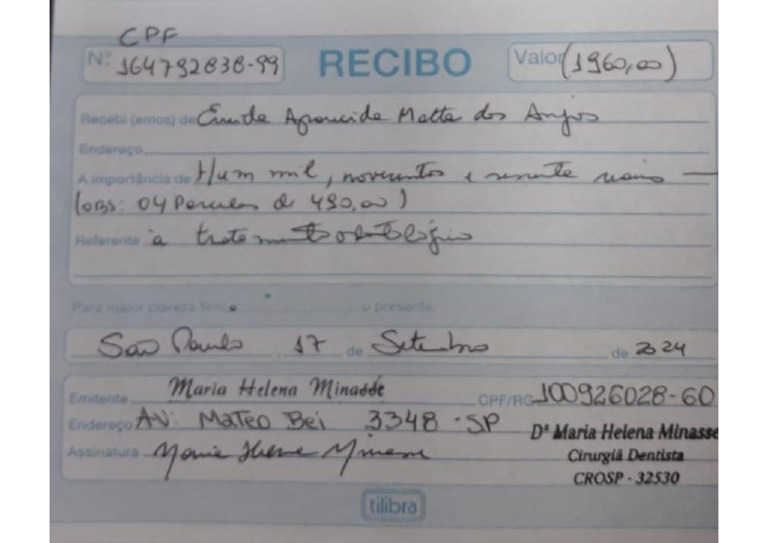 CPF
Nº 164792838-99 RECIBO Valor (1960,00)
Recebi (emos) de Eneida Aparecida Matta dos Anjos
Endereço
A importância de Hum mil, novecentos e sessenta reais
(OBS: 04 Parcelas de 490,00)
Referente a tratamento odontológico
Para maior clareza firmo o presente
São Paulo 17 de Setembro de 2024
Emitente Maria Helena Minasse CPF/RG 100926028-60
Endereço AV: MATEO BEI 3348 - SP
Dª Maria Helena Minasse
Assinatura Maria Helena Minasse
Cirurgiã Dentista
CROSP - 32530
tilibra